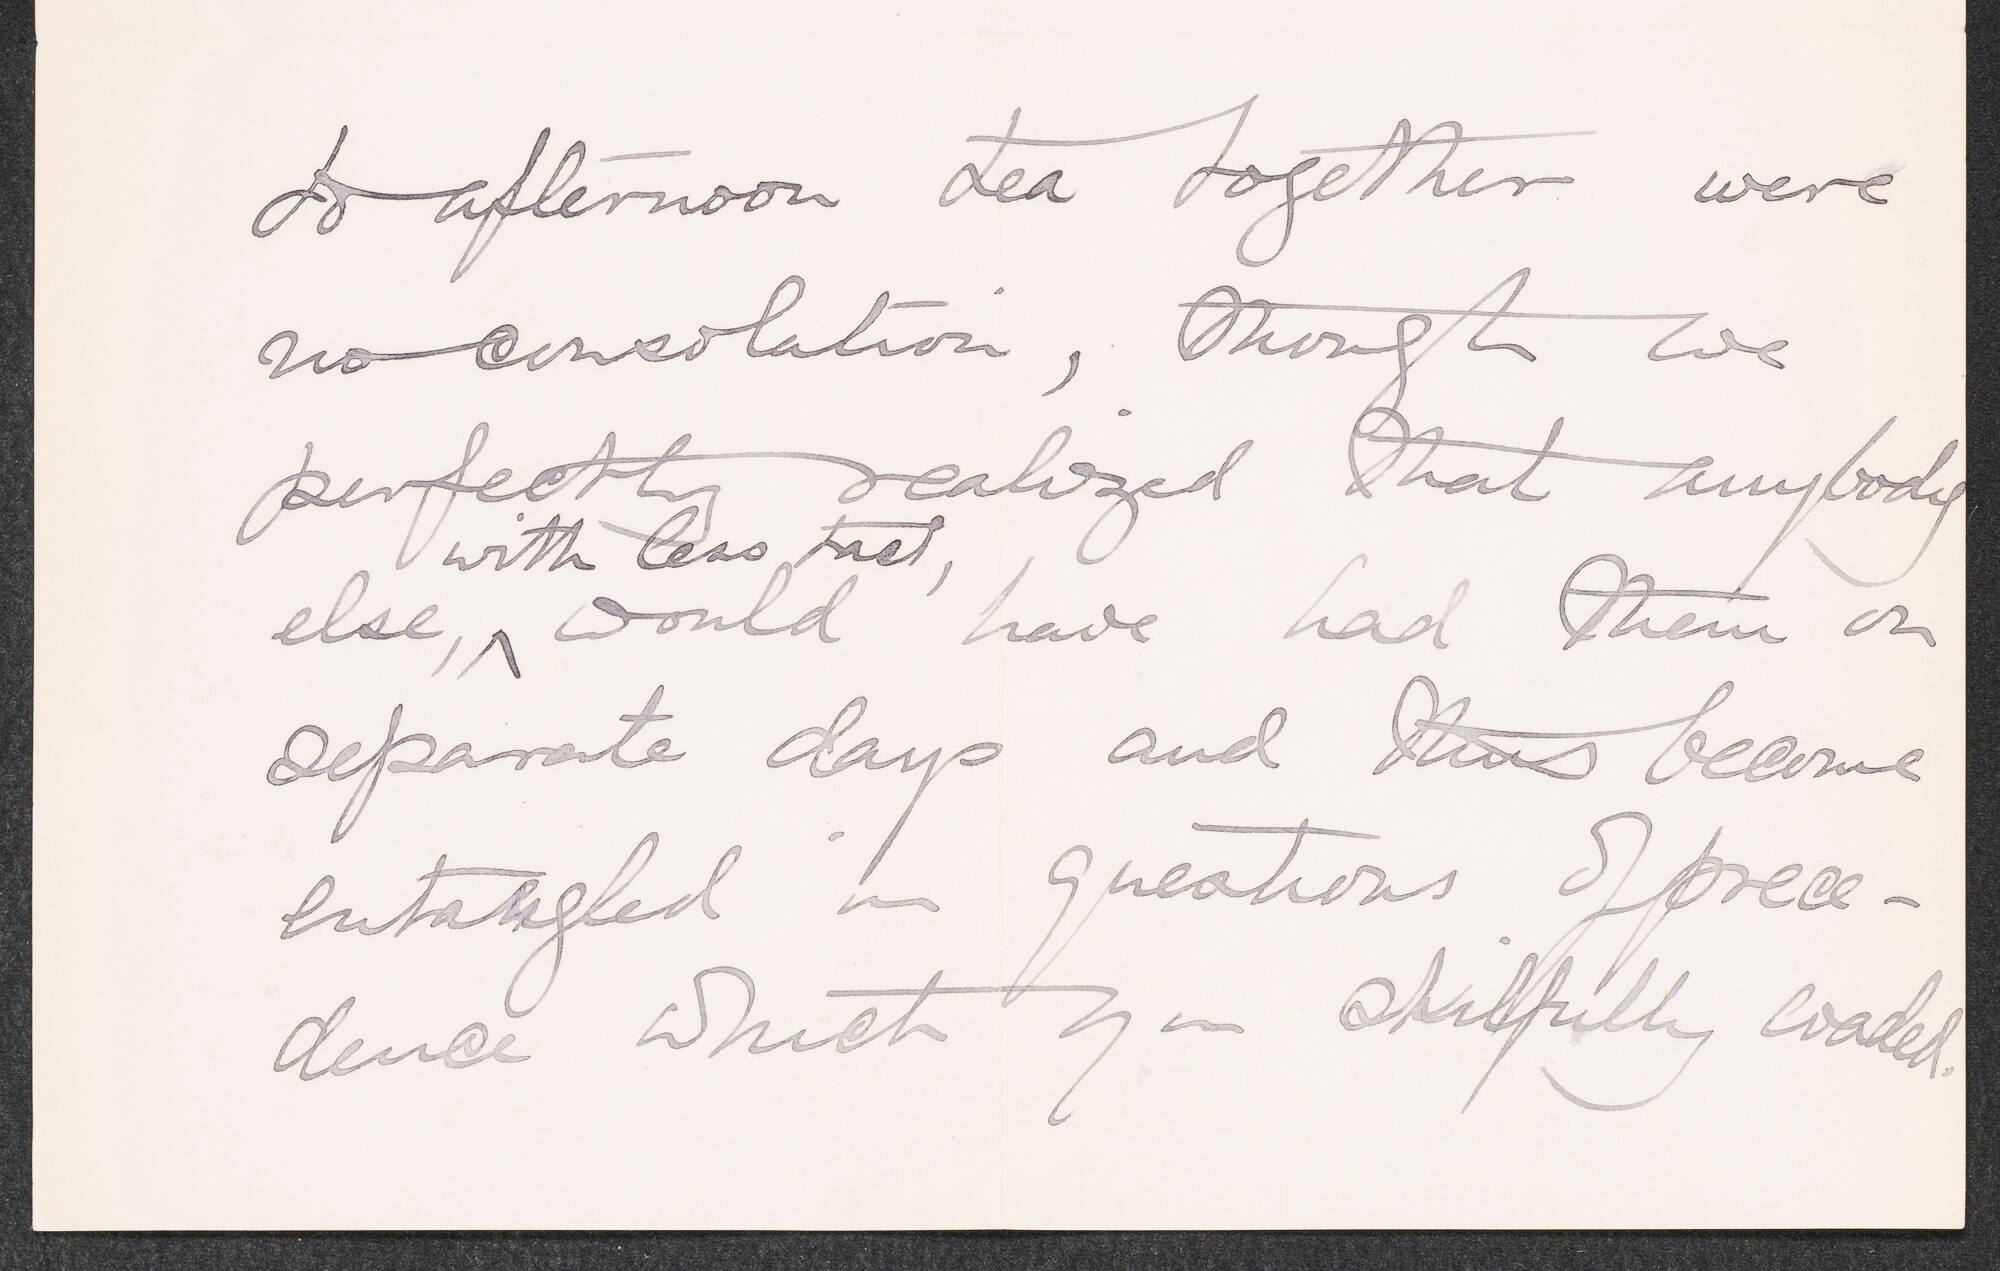 to afternoon tea together were
no consolation, though we
perfectly realized that anybody
with less tact,
else, ^ would have had them on
separate days and thus become
entangled in questions of prece-
dence which you skilfully evaded.